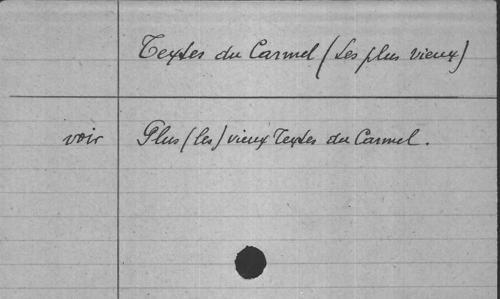 Textes du Carmel (Les plus vieux)
voir Plus (les) vieux Textes du Carmel.